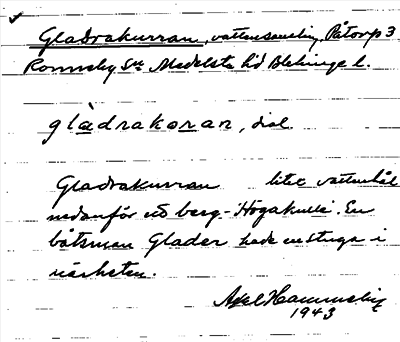 Gladrakurran, vattensamling, Påtorp 3
Ronneby Sn Medelsta hd Blekinge l.
glàdrakoran, dial
Gladrakurran litet vattenhål
nedanför ett berg - Högakulle. En
båtsman Glader hade en stuga i
närheten.
Axel Hammeby
1943